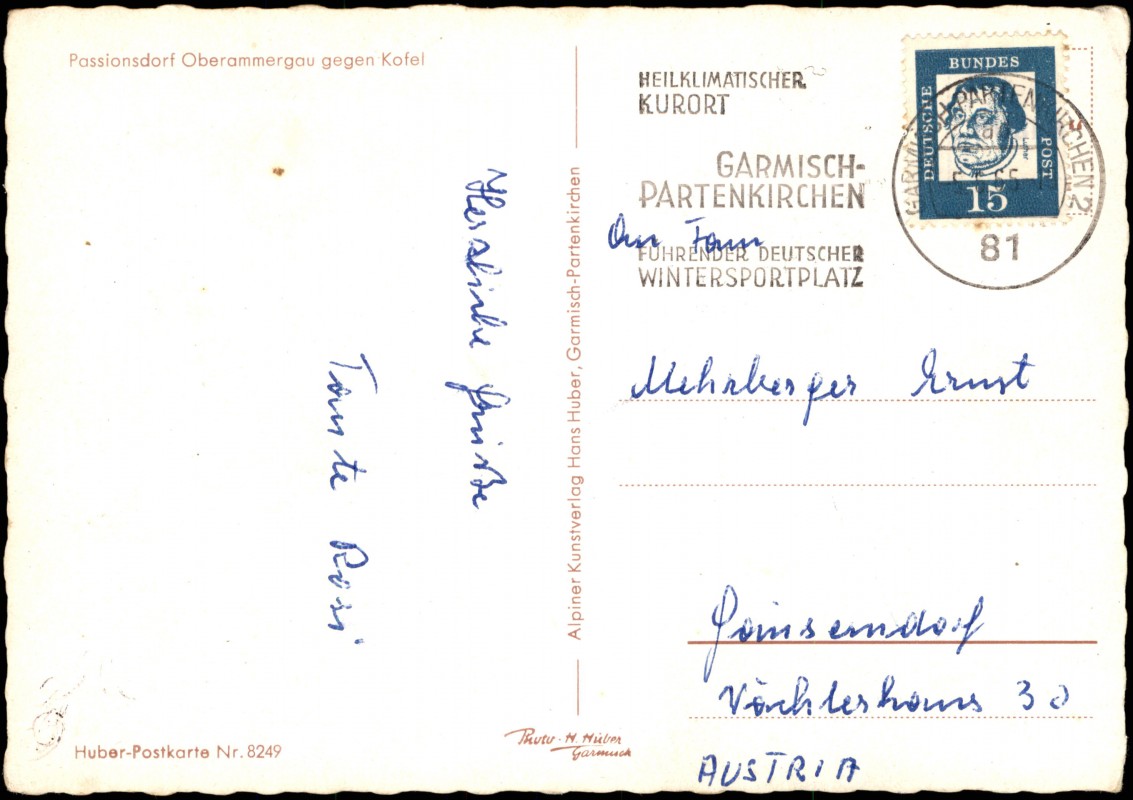 Passionsdorf Oberammergau gegen Kofel
Herzliche Grüße
Tante Rosi
Huber-Postkarte Nr. 8249
Alpiner Kunstverlag Hans Huber, Garmisch-Partenkirchen
Photo · H. Huber
Garmisch
HEILKLIMATISCHER
KURORT
GARMISCH-
PARTENKIRCHEN
FÜHRENDER DEUTSCHER
WINTERSPORTPLATZ
DEUTSCHE
BUNDES
POST
15
GARMISCH-PARTENKIRCHEN 2
81
An Fam
Mehrberger Ernst
Gänserndorf
Wächterhaus 30
AUSTRIA